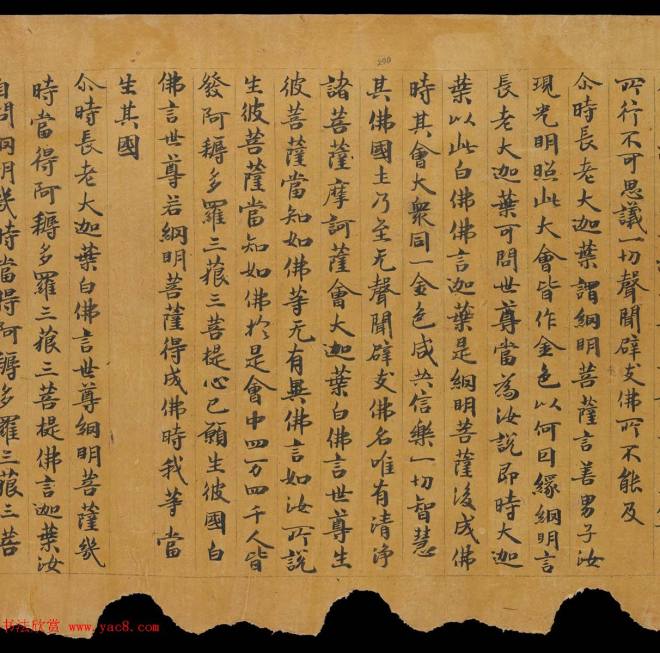 所行不可思議一切聲聞辟支佛所不能及
尒時長老大迦葉謂網明菩薩言善男子汝
現光明照此大會皆作金色以何因緣網明言
長老大迦葉可問世尊當為汝說即時大迦
葉以此白佛佛言迦葉是網明菩薩後成佛
時其會大眾同一金色咸共信樂一切智慧
其佛國土乃至无聲聞辟支佛名唯有清淨
諸菩薩摩訶薩會大迦葉白佛言世尊生
彼菩薩當知如佛等无有異佛言如汝所說
生彼菩薩當知如佛於是會中四万四千人皆
發阿耨多羅三藐三菩提心已願生彼國白
佛言世尊若網明菩薩得成佛時我等當
生其國
尒時長老大迦葉白佛言世尊網明菩薩幾
時當得阿耨多羅三藐三菩提佛言迦葉汝
自問網明幾時當得阿耨多羅三藐三菩
书法欣赏 www.yac8.com